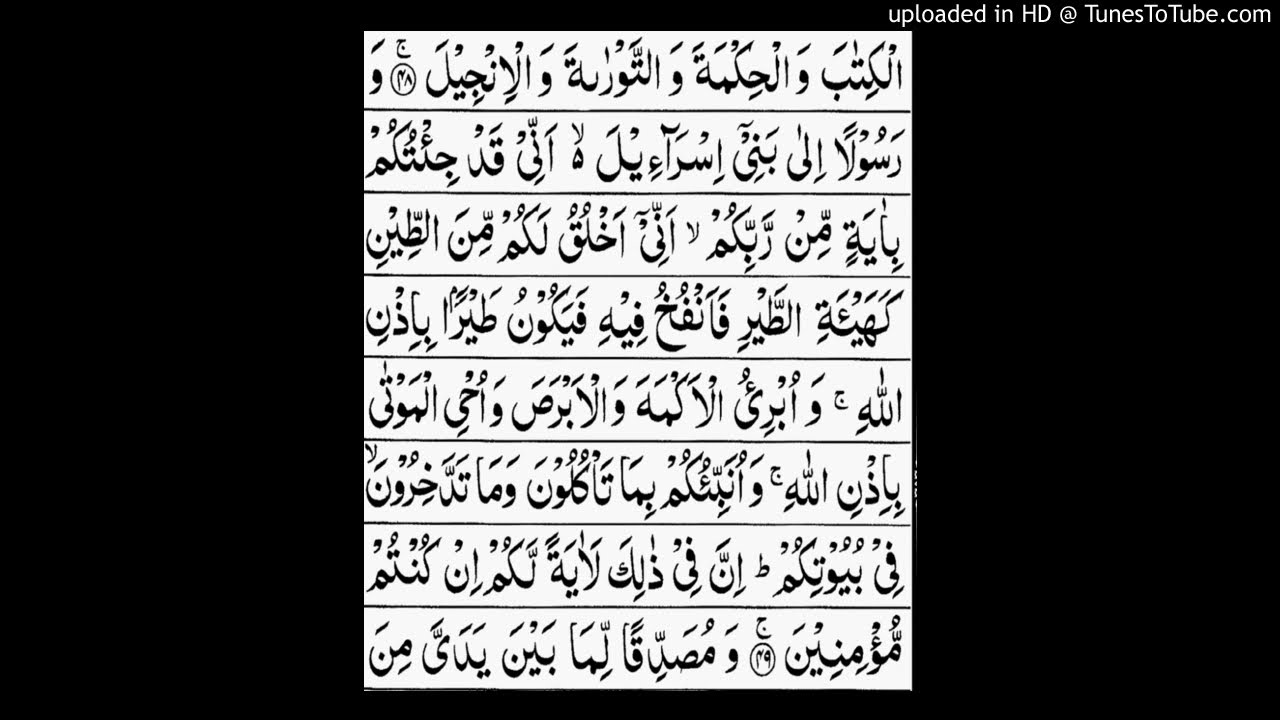 uploaded in HD @ TunesToTube.com
الْكِتٰبَ وَ الْحِكْمَةَ وَ التَّوْرٰىةَ وَ الْاِنْجِيْلَ ۚ﴿۴۸﴾ وَ
رَسُوْلًا اِلٰى بَنِيْۤ اِسْرَآءِيْلَ ۙ۬ اَنِّيْ قَدْ جِئْتُكُمْ
بِاٰيَةٍ مِّنْ رَّبِّكُمْ ۙ اَنِّيْۤ اَخْلُقُ لَكُمْ مِّنَ الطِّيْنِ
كَهَيْـَٔةِ الطَّيْرِ فَاَنْفُخُ فِيْهِ فَيَكُوْنُ طَيْرًۢا بِاِذْنِ
اللّٰهِ ۚ وَ اُبْرِئُ الْاَكْمَهَ وَ الْاَبْرَصَ وَ اُحْيِ الْمَوْتٰى
بِاِذْنِ اللّٰهِ ۚ وَ اُنَبِّئُكُمْ بِمَا تَاْكُلُوْنَ وَ مَا تَدَّخِرُوْنَ ۙ
فِيْ بُيُوْتِكُمْ ؕ اِنَّ فِيْ ذٰلِكَ لَاٰيَةً لَّكُمْ اِنْ كُنْتُمْ
مُّؤْمِنِيْنَ ۚ﴿۴۹﴾ وَ مُصَدِّقًا لِّمَا بَيْنَ يَدَيَّ مِنَ